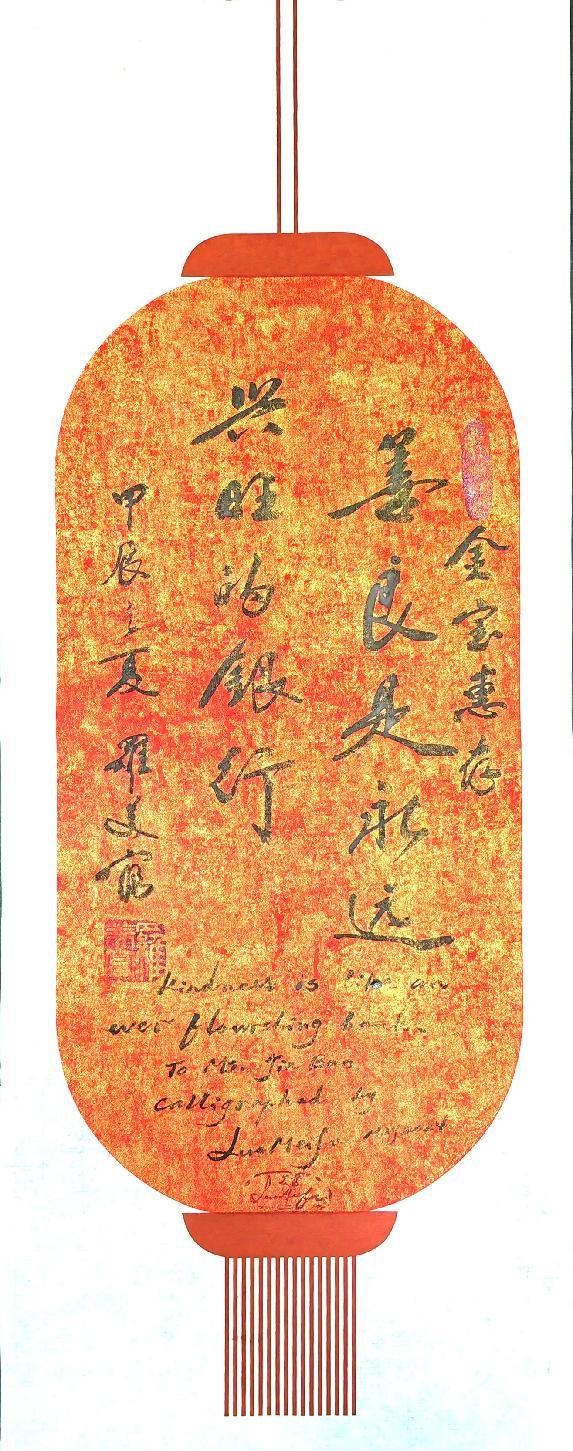 金宝惠存
善良是永远
兴旺的银行
甲辰之夏 罗美富
kindness is like an
ever flourishing bank.
To Mr. Jin Bao
Calligraphed by
Luo Meifu